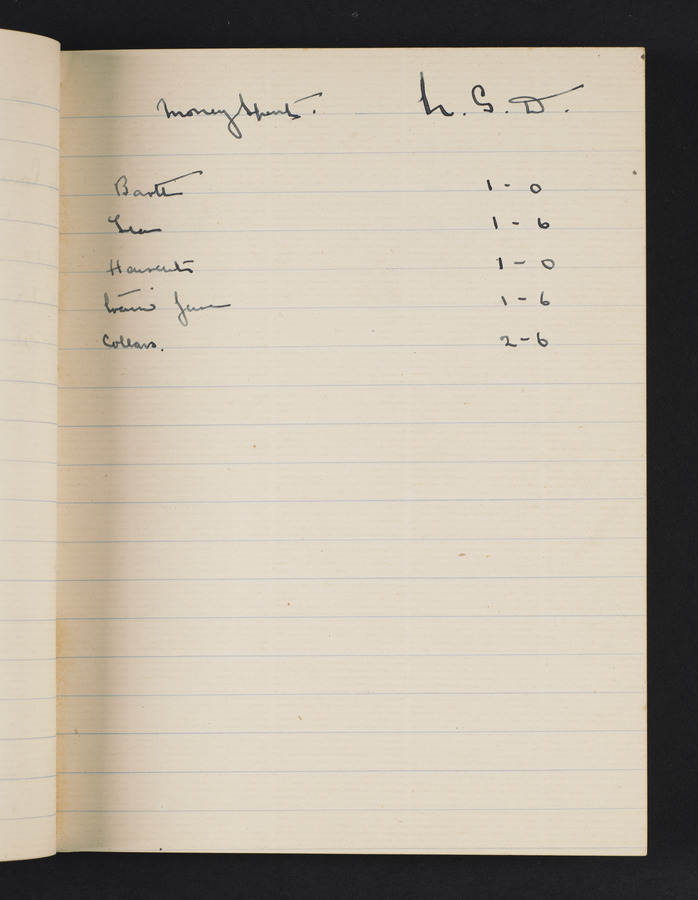 Money Spent. L. S. D.
Bath 1 - 0
Tea 1 - 6
Haircuts 1 - 0
Train fare 1 - 6
Collars. 2 - 6